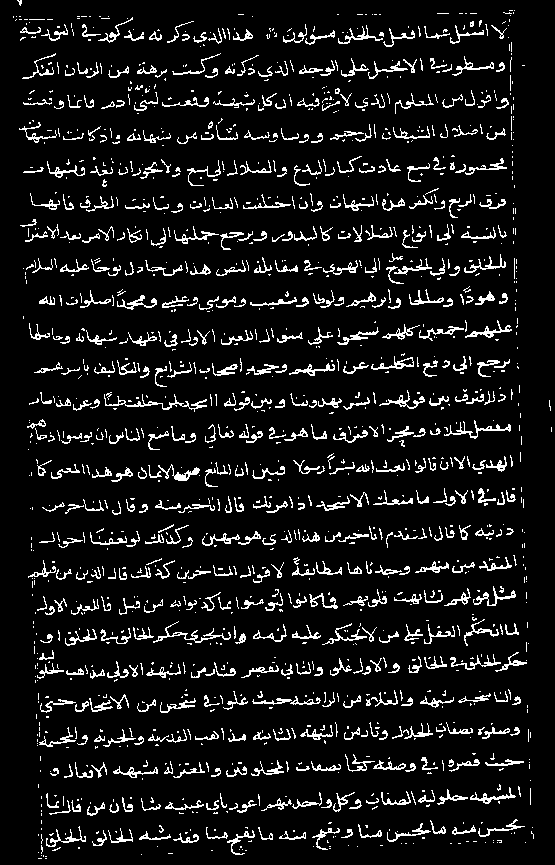 لا اسئل عما افعل والخلق مسؤلون هذا الذي ذكرته مذكور في التورية
ومسطور في الانجيل على الوجه الذي ذكرته وكنت برهة من الزمان اتفكر
واقول من المعلوم الذي لا مرية فيه ان كل شبهة وقعت لبني آدم فانما وقعت
من اضلال الشيطان الرجيم ووساوسه نشأت من شبهاته واذ كانت الشبهات
محصورة في سبع عادت كبار البدع والضلال الى سبع ولا يجوز ان تعدو شبهات
فرق الزيغ والكفر هذه الشبهات وان اختلفت العبارات وتباينت الطرق فانها
بالنسبة الى انواع الضلالات كالبذور ويرجع جملتها الى انكار الامر بعد الاعتراف
بالخلق والى الجنوح الى الهوى في مقابلة النص هذا من جادل نوحا عليه السلام
وهودا وصالحا وابرهيم ولوطا وشعيب وموسى وعيسى ومحمدا صلوات الله
عليهم اجمعين كلهم نسجوا على منوال اللعين الاول في اظهار شبهاته وحاصلها
يرجع الى دفع التكليف عن انفسهم وجحد اصحاب الشرايع والتكاليف باسرهم
اذ لا فرق بين قولهم ابشر يهدوننا وبين قوله ااسجد لمن خلقت طينا وعن هذا صار
مفصل الخلاف ومحز الافتراق ما هو في قوله تعالى وما منع الناس ان يومنوا اذ جاءهم
الهدى الا ان قالوا ابعث الله بشرا رسولا فبين ان المانع من الايمان هو هذا المعنى كما
قال في الاول ما منعك الا تسجد اذ امرتك قال انا خير منه وقال المتاخر من
ذريته كما قال المتقدم انا خير من هذا الذي هو مهين وكذلك لو تعقبنا احوال
المتقدمين منهم وجدناها مطابقة لاقوال المتاخرين كذلك قال الذين من قبلهم
مثل قولهم تشابهت قلوبهم فما كانوا ليومنوا بما كذبوا به من قبل فاللعين الاول
لما ان حكم العقل على من لا يحتكم عليه لزمه ان يجري حكم الخالق في الخلق او
حكم الخلق في الخالق والاول غلو والثاني تقصير فثار من الشبهة الاولى مذاهب الحلولية
والتناسخية شبهة والغلاة من الرافضة حيث غلوا في شخص من الاشخاص حتى
وصفوه بصفات الجلال وثار من الشبهة الثانية مذاهب القدرية والجبرية والمجسمة
حيث قصروا في وصفه تعالى بصفات المخلوقين والمعتزلة مشبهة الافعال و
المشبهة حلولية الصفات وكل واحد منهم اعور باي عينيه شا فان من قال انما
يحسن منه ما يحسن منا ويقبح منه ما يقبح منا فقد شبه الخالق بالخلق